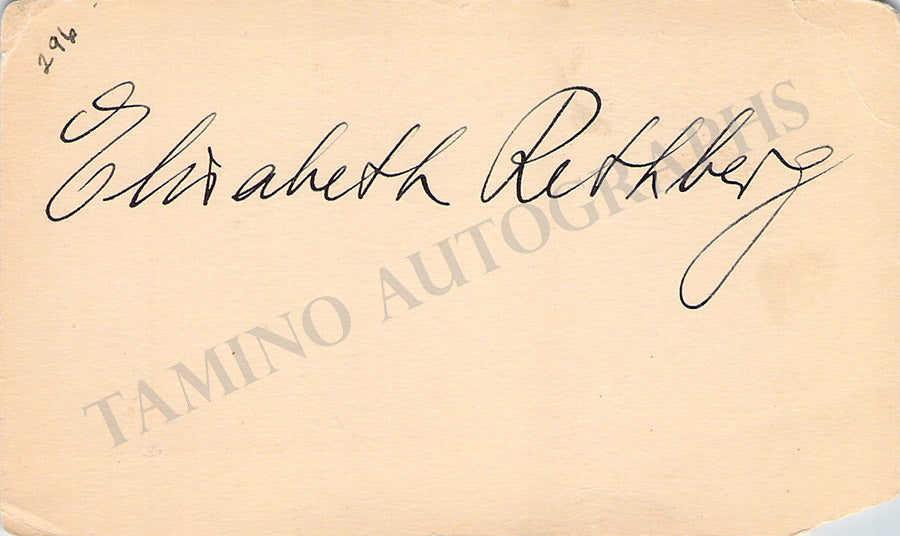 296
Elisabeth Rethberg
TAMINO AUTOGRAPHS